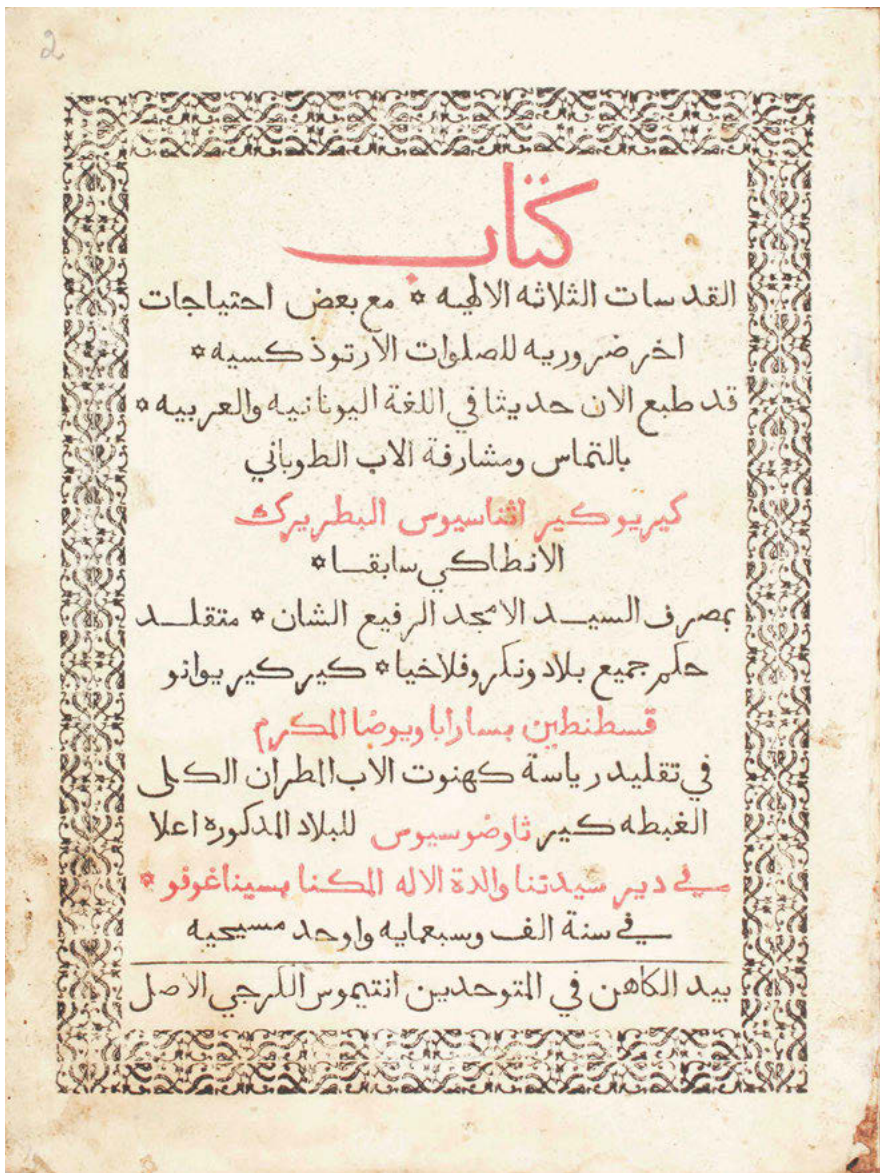 2
كتاب
القدسات الثلاثه الالهيه * مع بعض احتياجات
اخر ضروريه للصلوات الارتوذكسيه *
قد طبع الان حديثا في اللغة اليونانيه والعربيه *
بالتماس ومشارفة الاب الطوباني
كيريو كير اثناسيوس البطريرك
الانطاكي سابقا *
بمصرف السيد الامجد الرفيع الشان * متقلد
حكم جميع بلاد ونكروفلاخيا * كير كير يوانو
قسطنطين بسارابا ويوضا المكرم
في تقليد رياسة كهنوت الاب المطران الكلى
الغبطه كير ثاوضوسيوس للبلاد المدكوره اعلا
في دير سيدتنا والدة الاله المكنا بسيناغوفو *
في سنة الف وسبعمايه واوحد مسيحيه
بيد الكاهن في المتوحدين انتيموس الكرجي الاصل